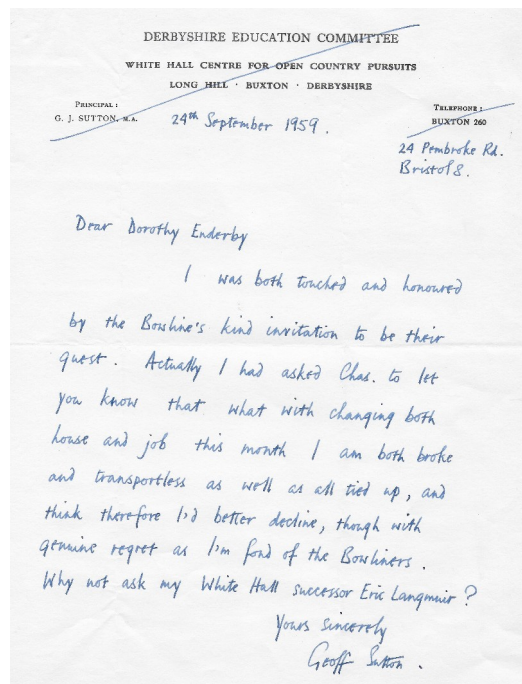 DERBYSHIRE EDUCATION COMMITTEE
WHITE HALL CENTRE FOR OPEN COUNTRY PURSUITS
LONG HILL · BUXTON · DERBYSHIRE
PRINCIPAL:
G. J. SUTTON, M.A.
TELEPHONE:
BUXTON 260
24th September 1959.
24 Pembroke Rd.
Bristol 8.
Dear Dorothy Enderby
I was both touched and honoured
by the Bowline's kind invitation to be their
guest. Actually I had asked Chas. to let
you know that what with changing both
house and job this month I am both broke
and transportless as well as all tied up, and
think therefore I'd better decline, though with
genuine regret as I'm fond of the Bowliners.
Why not ask my White Hall successor Eric Langmuir?
Yours sincerely
Geoff Sutton.